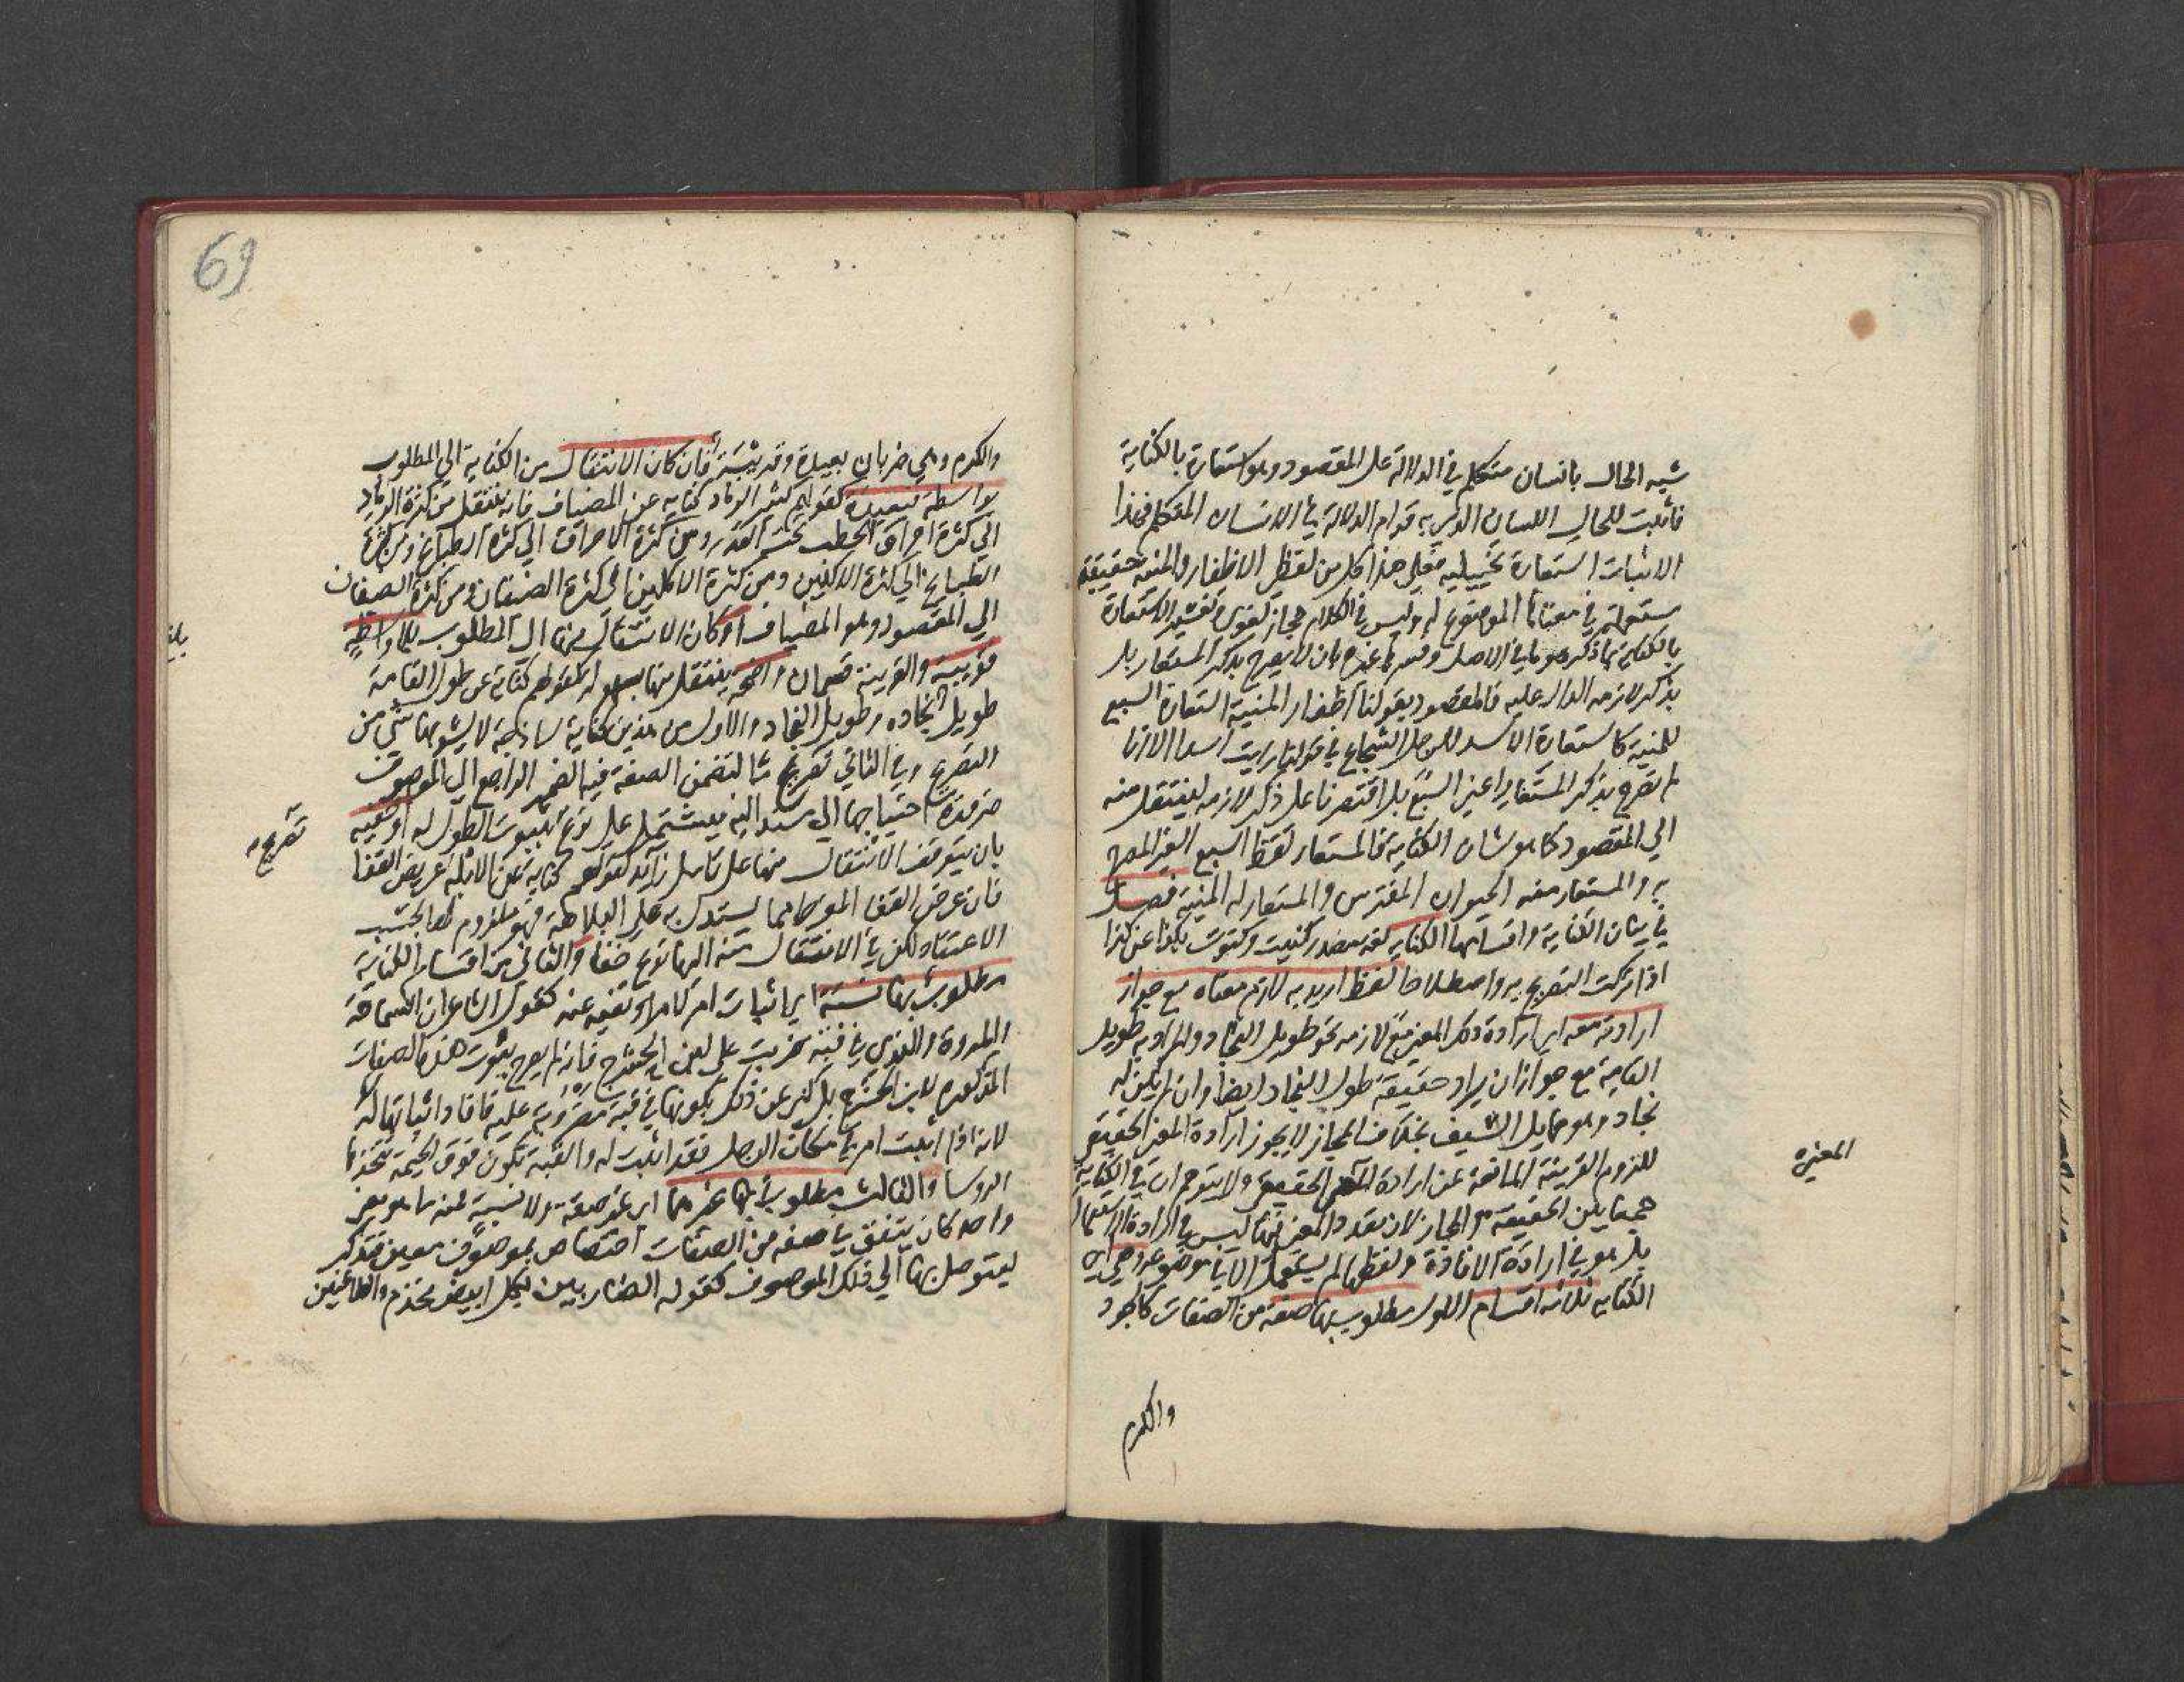 شبه الحال بانسان متكلم في الدلالة على المقصود وهو استعارة بالكناية
فاثبت للحال اللسان الذي به قوام الدلالة في الانسان المتكلم فهذا
الاثبات استعارة تخييلية فعلى هذا كل من لفظى الاظفار والمنية حقيقة
مستعملة في معناها الموضوع له وليس في الكلام مجاز لغوى تفسير الاستعارة
بالكناية بما ذكره هو ما في الاصل وفسرها غيره بان لا يصرح بذكر المستعار بل
بذكر لازمه الدال عليه فالمقصود بقولنا اظفار المنية استعارة السبع
للمنية كاستعارة الاسد للرجل الشجاع في قولنا رايت اسدا الا انا
لم نصرح بذكر المستعار اعنى السبع بل اقتصرنا على ذكر لازمه لينتقل منه
الى المقصود كما هو شان الكناية فالمستعار لفظ السبع الغير المصرح
به والمستعار منه الحيوان المفترس والمستعار له المنية فصل
في بيان الكناية واقسامها الكناية لغة مصدر كنيت وكنوت بكذا عن كذا
اذا تركت التصريح به واصطلاحا لفظ اريد به لازم معناه مع جواز
ارادته معه اى ارادة ذلك المعنى مع لازمه نحو طويل النجاد والمراد به طويل
القامة مع جواز ان يراد حقيقة طول النجاد ايضا وان لم يكن له
نجاد وهو حمايل السيف بخلاف المجاز لا يجوز ارادة المعنى الحقيقى
للزوم القرينة المانعة عن ارادة المعنى الحقيقى ولا يتوهم ان في الكناية
جمعا بين الحقيقة والمجاز لان تعدد المعنى هنا ليس في ارادة الاستعمال
بل هو في ارادة الافادة ولفظها لم يستعمل الا في موضوعه وهى اى
الكناية ثلاثة اقسام الاول مطلوب بها صفة من الصفات كالجود
والكرم
والكرم وهى ضربان بعيدة وقريبة فان كان الانتقال من الكناية الى المطلوب
بواسطة فبعيدة كقولهم كثير الرماد كناية عن المضياف فانه ينتقل من كثرة الرماد
الى كثرة احراق الحطب تحت القدر ومن كثرة الاحراق الى كثرة الطبائخ ومن كثرة
الطبائخ الى كثرة الاكلين ومن كثرة الاكلين الى كثرة الضيفان ومن كثرة الضيفان
الى المقصود وهو المضياف او كان الانتقال منها الى المطلوب بلا واسطة
فقريبة والقريبة قسمان واضحة ينتقل منها بسهولة كقولهم كناية عن طول القامة
طويل نجاده وطويل النجاد والاول من هذين كناية ساذجة لا يشوبها شئ من
التصريح وفي الثاني تصريح ما لتضمن الصفة فيه الضمير الراجع الى الموصوف
ضرورة احتياجها الى مسند اليه فيشتمل على نوع بثبوت الطول له او خفية
تصريح
بان يتوقف الانتقال منها على تامل زائد كقولهم كناية عن الابله عريض القفا
فان عرض القفا المفرط مما يستدل به على البلاهة فهو ملزوم لها بحسب
الاعتقاد لكن في الانتقال منه اليها نوع خفا والثانى من اقسام الكناية
مطلوب بها نسبة اى اثبات امر لامر او نفيه عنه كقول الشاعر ان السماحة
والمروة والندى في قبة ضربت على ابن الحشرج فانه لم يصرح بثبوت هذه الصفات
المذكورة لابن الحشرج بل كنى عن ذلك بكونها في قبة مضروبة عليه فافاد اثباتها له
لانه اذا اثبت امر في مكان الرجل فقد اثبت له والقبة تكون فوق الخيمة يتخذها
الروسا والثالث مطلوب بها غيرهما اى غير صفة ولا نسبة فمنه ما هو معنى
واحد كان يتفق في صفة من الصفات اختصاص بموصوف معين فتذكر
ليتوصل بها الى ذلك الموصوف كقوله الضاربين بكل ابيض مخذم والطاعنين
المعنى
69